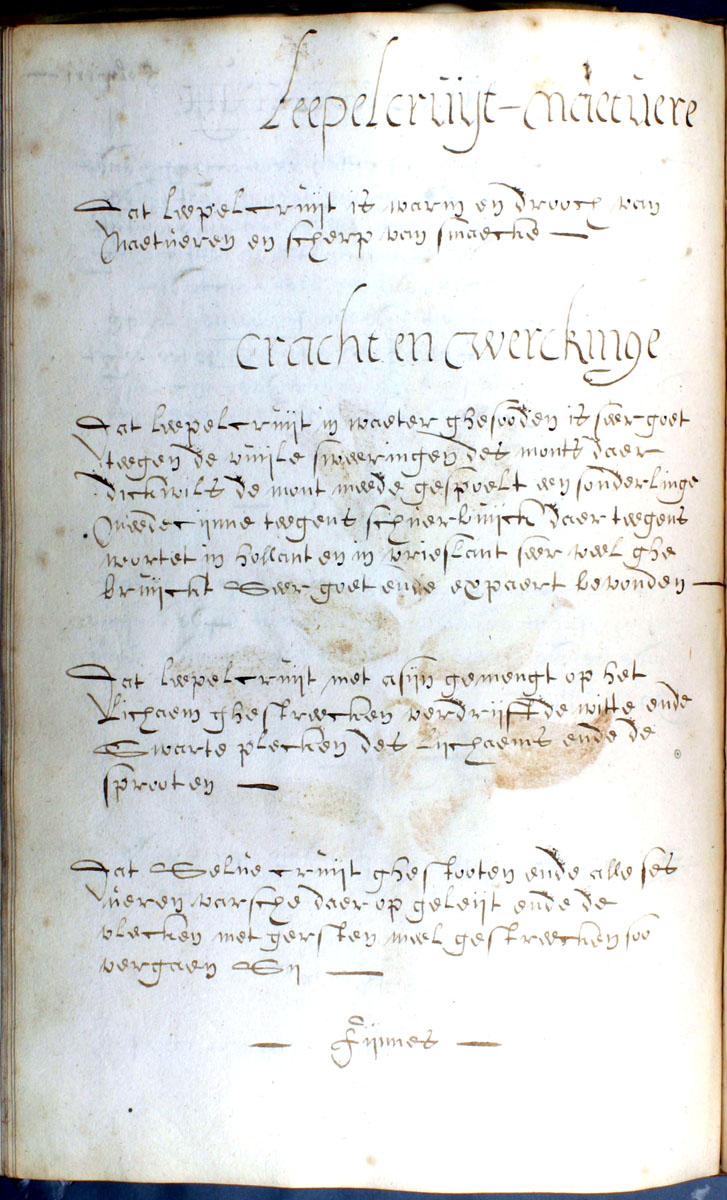 Leepelcruijt - Naetuere
Dat leepelcruijt is warm en drooch van
Naetueren en scherp van smaecke —
Cracht en Werckinge
Dat leepelcruijt in waeter ghesooden is seer goet
tegen de vuijle sweeringen des monts daer
dickwils de mont meede gespoelt een sonderlinge
Meedecijnne teegens schuerbuijck daer teegens
wortet in hollant en in vrieslant seer veel ghe
bruijckt Seer goet ende expaert bevonden —
Dat leepelcruijt met asijn gemengt op het
Lichaem ghestreecken verdrijft de witte ende
Swarte plecken des Lijchaems ende de
sprooten —
Dat Selve cruijt ghestooten ende alle ses
ueren varsche daer op geleijt ende de
vlecken met gersten meel gestreecken soo
vergaen Sij —
— Fijnnes —